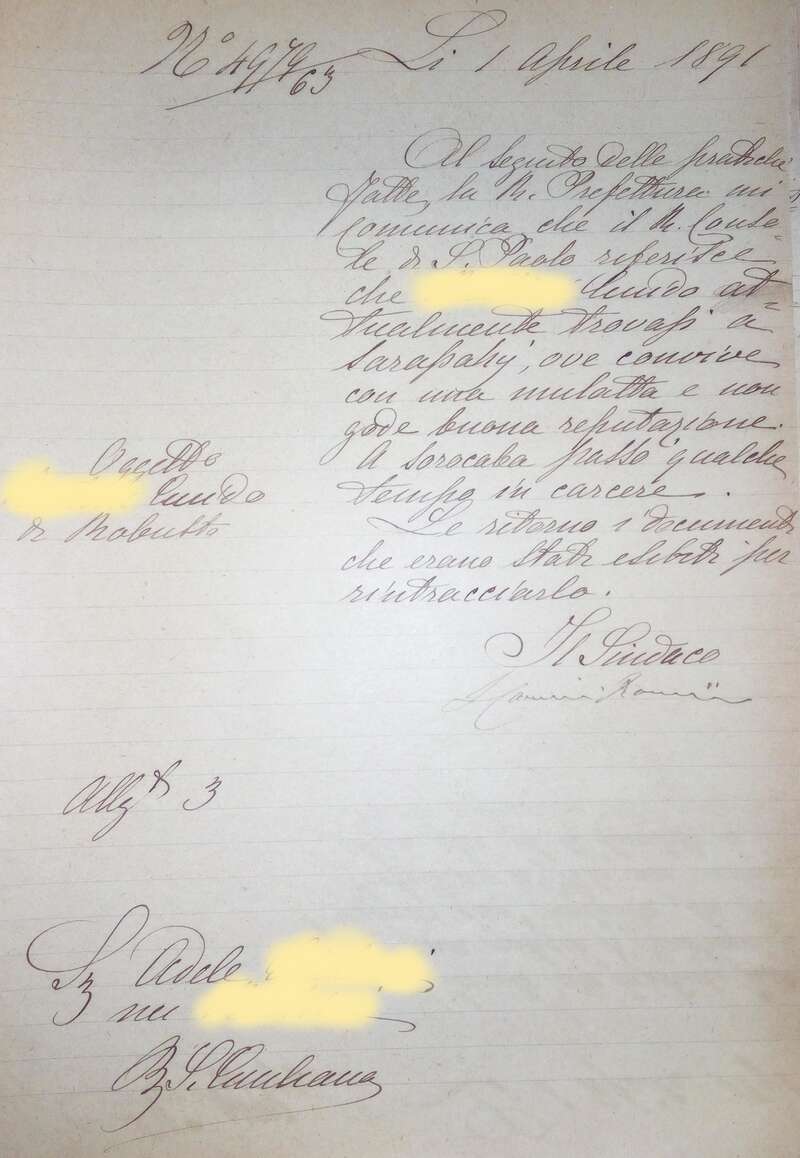 N° 4979/63 Li 1 Aprile 1891
Al seguito delle pratiche
fatte, la R. Prefettura mi
comunica che il R. Conso=
le di S. Paolo riferisce
che Guido at=
tualmente trovasi a
Sarapahy, ove convive
con una mulatta e non
gode buona reputazione.
A Sorocaba passò qualche
tempo in carcere.
Oggetto
Guido
di Robusto
Le ritorno i documenti
che erano stati esibiti per
rintracciarlo.
Il Sindaco
Allg.ti 3
Adele
nei
B. S. Giuliano